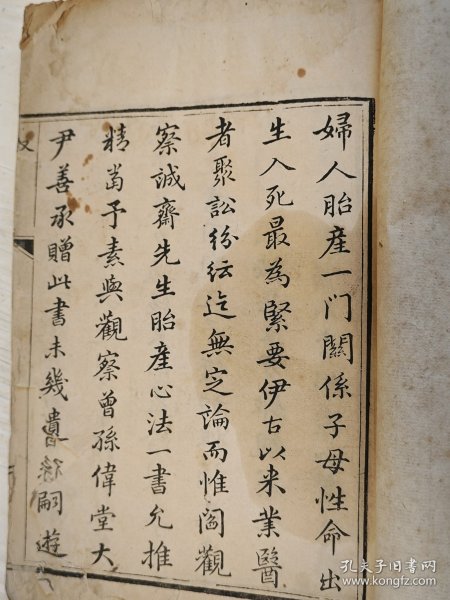 婦人胎産一門關係子母性命出
生入死最為緊要伊古以来業醫
者聚訟紛紜迄無定論而惟閻觀
察誠齋先生胎産心法一書允推
精當予素與觀察曾孫偉堂大
尹善承贈此書未幾遣孫嗣遊
孔夫子旧书网
www.kongfz.com